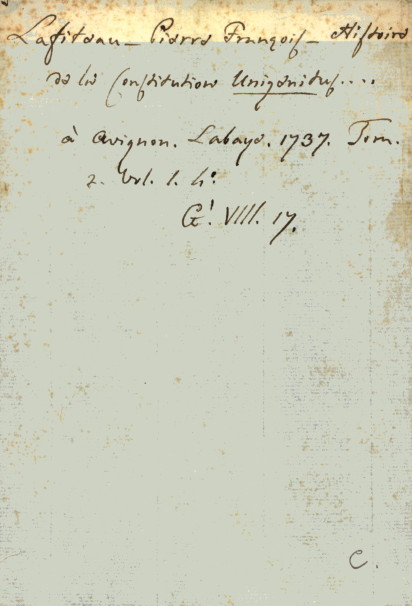 Lafiteau - Pierre François - Histoire
de la Constitution Unigenitus....
à Avignon. Labaye. 1737. Tom.
2. Vol. 1. 4.º
G. VIII. 17.
C.